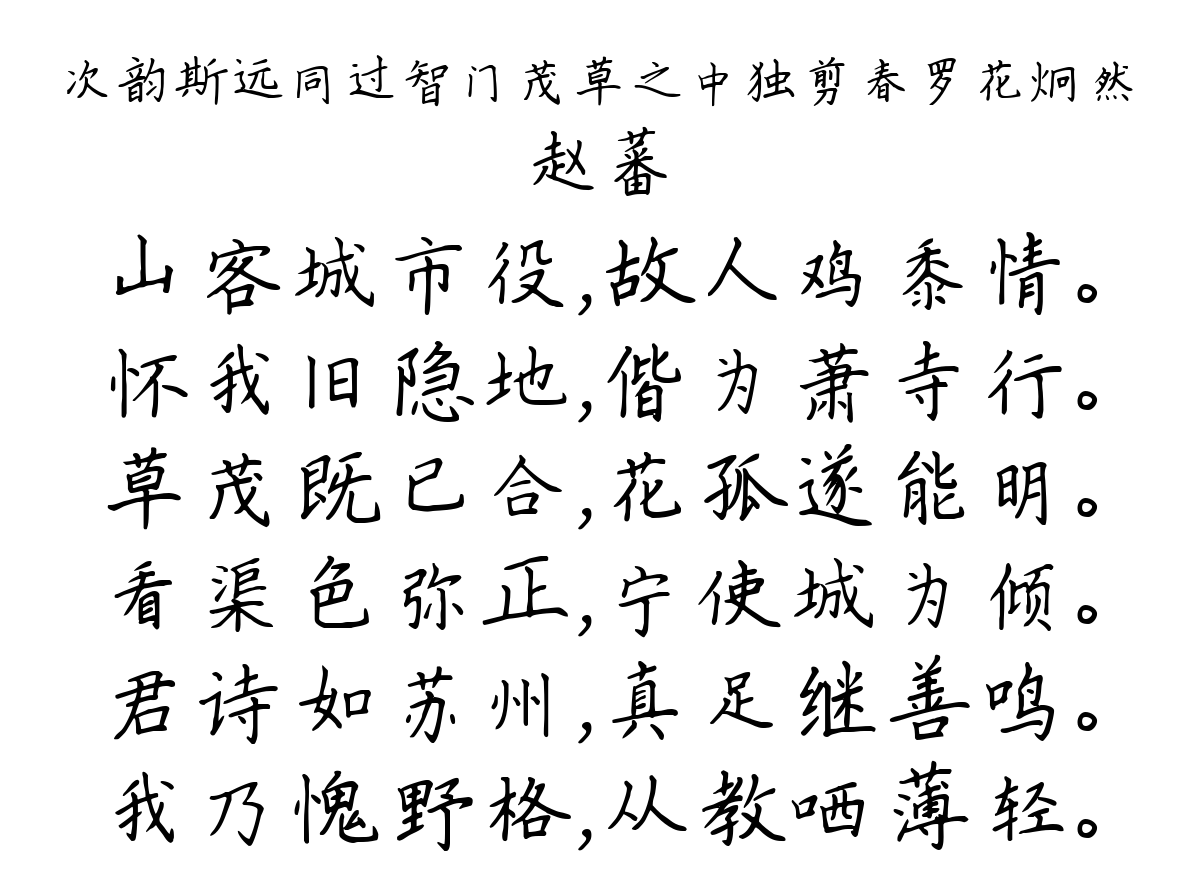 次韵斯远同过智门茂草之中独剪春罗花炯然
赵蕃
山客城市役,故人鸡黍情。
怀我旧隐地,偕为萧寺行。
草茂既已合,花孤遂能明。
看渠色弥正,宁使城为倾。
君诗如苏州,真足继善鸣。
我乃愧野格,从教哂薄轻。